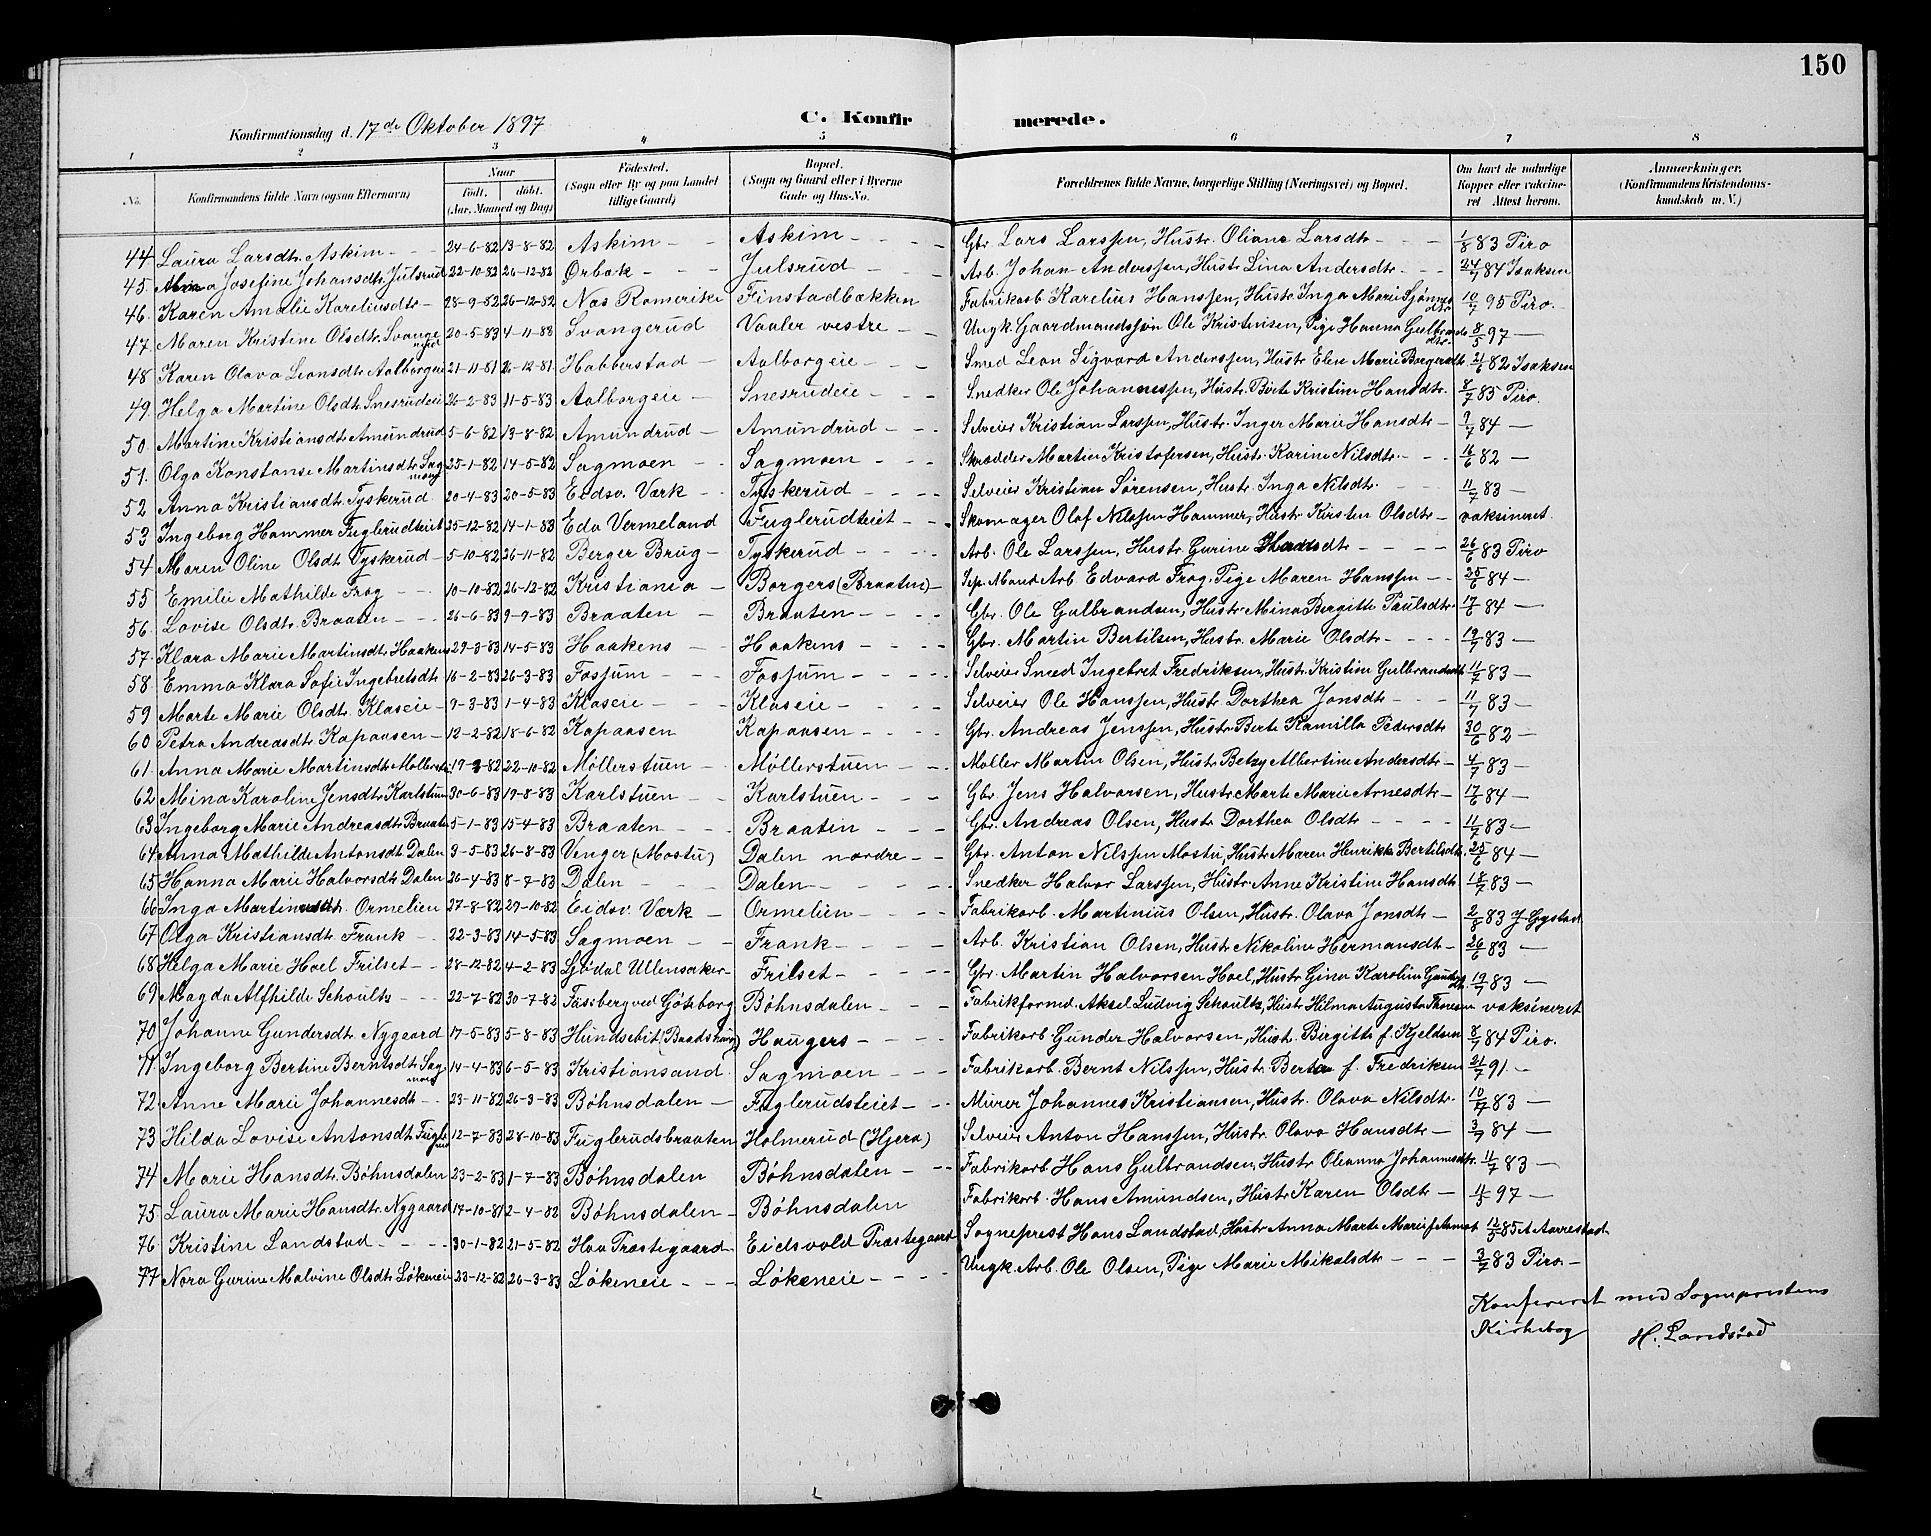 150
Konfirmationsdag d. 17de Oktober 1897 C. Konfirmerede.
1 2 3 4 5 6 7 8
No. Konfirmandens fulde Navn (ogsaa Efternavn) Naar født. døbt. (Aar, Maaned og Dag) Fødested. (Sogn eller By og paa Landet tillige Gaard) Bopæl. (Sogn og Gaard eller i Byerne Gade og Hus-No. Forældrenes fulde Navne, borgerlige Stilling (Næringsvei) og Bopæl. Om havt de naturlige Kopper eller vakcineret Attest herom. Anmærkninger. (Konfirmandens Kristendomskundskab m. V.)
44. Laura Larsdtr. Askim - - 24-6-82 13-8-82 Askim - - Askim - - - Gbr. Lars Larssen, Hustr. Oliane Larsdtr - - - 1/8 83 Piro
45. Josefine Johansdtr. Julsrud 22-10-82 26-12-82 Ørbæk - - Julsrud - - - Arb. Johan Anderssen, Hustr Lina Andersdtr. - - 24/7 84 Isaksen
46. Karen Amalie Kareliusdtr - 28-9-82 26-12-82 Næs Romerike Finstadbakken Fabrikarb Karelius Hanssen, Hustr. Inga Marie 10/7 95 Piro.
47. Maren Kristine Olsdtr. Svangerud 20-5-83 4-11-88 Svangerud Vaaler vestre - - Ungk. Gaardmandssøn Ole Kristensen, Pige Hanna Gulbrandsdtr. 8/5 97 -
48. Karen Olava Leonsdtr Aalborgeie 21-11-81 26-12-81 Habberstad - Aalborgeie - - - Smed Leon Sigvard Anderssen, Hustr Elen Marie Borgersdtr. 21/6 82 Isaksen
49. Helga Martine Olsdtr. Snesrudeie 26-2-83 11-5-83 Aalborgeie - Snesrudeie - - - Snedker Ole Johannessen, Hustr. Berte Kristine Hansdtr. 8/7 85 Piro.
50. Martine Kristiansdtr Amundrud 5-6-82 13-8-82 Amundrud - Amundrud - - - Selveier Kristian Larssen, Hustr. Inger Marie Hansdtr - 9/7 84 -
51. Olga Konstanse Martinsdtr. Sagmoen 25-1-82 14-5-82 Sagmoen - - Sagmoen - - - Skrædder Martin Kristofersen, Hustr. Karine Nilsdtr. - - 16/6 82 -
52. Anna Kristiansdtr. Tyskerud 20-4-83 20-5-83 Eidsv. Værk - - Tyskerud - - - Selveier Kristian Sørensen, Hustr. Inga Nilsdtr. - - 11/7 83 -
53. Ingeborg Hammer Fuglerudteiet 25-12-82 14-1-83 Eda Vermeland Fuglerudteiet - - Skomager Olaf Nilssen Hammer, Hustr. Kirsten Olsdtr - vaksineret
54. Maren Oline Olsdtr. Tyskerud - 5-10-82 26-11-82 Berger Brug - Tyskerud - - - Arb. Ole Larssen, Hustr Gurine Hansdtr - - - 26/6 83 Piro
55. Emilie Mathilde Frog - - 10-10-82 26-12-82 Kristiania - Borgers (Braaten) - Sep. Mand Arb. Edvard Frog, Pige Maren Hanssen - - 25/6 84 -
56. Lovise Olsdtr. Braaten - - 26-6-83 9-9-83 Braaten - Braaten - - - Gbr. Ole Gulbrandsen, Hustr. Mina Birgitte Paulsdtr. 17/6 84 -
57. Klara Marie Martinsdtr. Haakens 29-3-83 14-5-83 Haakens - Haakens - - - Gbr. Martin Bertilsen, Hustr. Marie Olsdtr - - - 19/7 83 -
58. Emma Klara Sofie Ingebretsdtr 16-2-83 26-3-83 Fossum - - Fossum - - - Selveier Smed Ingebret Fredriksen, Hustr. Kristine Gulbrandsdtr 11/7 83 -
59. Marte Marie Olsdtr. Klaseie - 9-3-83 1-4-83 Klaseie - - Klaseie - - - Selveier Ole Hanssen, Hustr. Dorthea Jonsdtr - - - 11/7 83 -
60. Petra Andreasdtr Kapaasen - 12-2-82 18-6-82 Kapaasen Kapaasen - - - Gbr. Andreas Jenssen, Hustr. Berte Kamilla Pedersdtr 30/6 82 -
61. Anna Marie Martinsdtr. 19-9-82 22-10-82 Møllerstuen - Møllerstuen - - Møller Martin Olsen, Hustr. Betzy Albertine Andersdtr - 4/7 83 -
62. Mina Karoline Jensdtr. Karlstuen 30-6-83 19-8-83 Karlstuen - - Karlstuen - - - Gbr. Jens Halvorsen, Hustr Marte Marie Arnesdtr - 17/6 84 -
63. Ingeborg Marie Andreasdtr Braaten 5-1-83 15-4-83 Braaten - - Braaten - - - Gbr. Andreas Olsen, Hustr. Dorthea Olsdtr - - - 11/7 83 -
64. Anna Mathilde Antonsdtr. Dalen 3-5-83 26-8-83 Venger (Mostu) Dalen nordre - - Gbr. Anton Nilssen Mostu, Hustr. Maren Henrikke Bertilsdtr. 25/6 84 -
65. Hanna Marie Halvorsdtr. Dalen 26-4-83 8-7-83 Dalen - - - Dalen - - - Snedker Halvor Larssen, Hustr. Anne Kristine Hansdtr 18/7 83 -
66. Inga Martinusdtr. Ormelien 27-8-82 29-10-82 Eidsv. Værk - Ormelien - - - Fabrikarb. Martinius Olsen, Hustr. Olava Jonsdtr - 2/8 83 J. Gystad
67. Olga Kristiansdtr. Frank - 22-3-83 14-5-83 Sagmoen - - Frank - - - Arb. Kristian Olsen, Hustr Nikoline Hermansdtr - 26/6 83 -
68. Helga Marie Hoel Frilset - - 28-12-82 4-2-83 Ullensaker - Frilset - - - Gbr. Martin Halvorsen Hoel, Hustr. Gina Karoline 19/7 83 -
69. Magda Alfhilde Schoultz - - 22-7-82 30-7-82 Fassberg ved Göteborg Bøhnsdalen - - Fabrikformd. Aksel Ludvig Schoultz, Hustr. Hilma Augusta Thoresen vaksineret
70. Johanne Gundersdtr. Nygaard 17-5-83 5-8-83 Hundsebit (Baadshaug) Haugers - - - Fabrikarb. Gunder Halvorsen, Hustr. Birgitte f. Kjeldsen 8/7 84 Piro.
71. Ingeborg Bertine Berntsdtr Sagmoen 14-4-83 6-5-83 Kristiansand Sagmoen - - - Fabrikarb. Bernt Nilssen, Hustr. Berta f. Fredriksen 21/7 91 -
72. Anne Marie Johannesdtr - - 23-11-82 26-3-83 Bøhnsdalen - Fuglerudsteiet - - Murer Johannes Kristiansen, Hustr. Olava Nilsdtr. 10/7 83 -
73. Hilda Lovise Antonsdtr. Fuglerud 12-7-83 28-10-83 Fuglerudsbraaten Holmerud (Hjera) Selveier Anton Hanssen, Hustr. Olava Hansdtr - 3/7 84 -
74. Marie Hansdtr. Bøhnsdalen 23-2-83 1-7-83 Bøhnsdalen Bøhnsdalen - - Fabrikarb Hans Gulbrandsen, Hustr Oleanna Johannesdtr. 11/7 83 -
75. Laura Marie Hansdtr. Nygaard 17-10-81 2-4-82 Bøhnsdalen - Bøhnsdalen Fabrikarb. Hans Amundsen, Hustr Karen Olsdtr - 4/5 97 -
76. Kristine Landstad - - - 30-1-82 21-5-82 Præstegaard Eidsvold Præstegaard Sogneprest Hans Landstad, Hustr. Anna Marte Marie 85 Aarrestad
77. Nora Gurine Malvine Olsdtr Løkeneie 23-12-82 26-3-83 Løkeneie - - Løkeneie - - - Ungk. Arb. Ole Olsen, Pige Marie Mikalsdtr - - - 3/7 83 Piro. -
Konfereret med Sogneprestens
Kirkebog H. Landstad